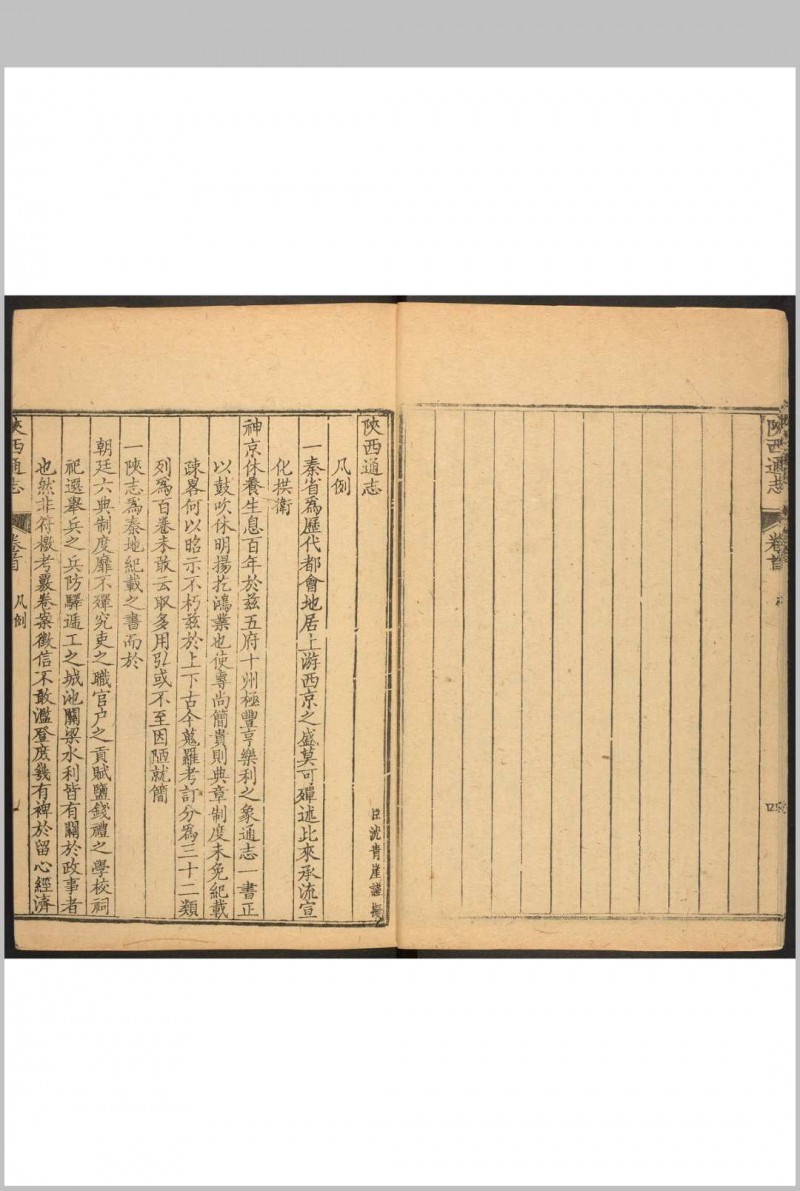 陝西通志
卷首
陝西通志
臣沈青崖謹擬
凡例
一秦省爲歷代都會地居上游西京之盛莫可殫述比來承流宣
化拱衛
神京休養生息百年於茲五府十州極豐亨樂利之象通志一書正
以鼓吹休明揚扢鴻業也使專尚簡貴則典章制度未免紀載
疎畧何以昭示不朽茲於上下古今蒐羅考訂分爲三十二類
列爲百卷未敢云取多用弘或不至因陋就簡
一陝志爲秦地紀載之書而於
朝廷六典制度靡不殫究吏之職官户之貢賦鹽錢禮之學校祠
祀選舉兵之兵防驛遞工之城池關梁水利皆有關於政事者
也然非符檄考覈卷案徵信不敢濫登庶幾有裨於留心經濟
陝西通志
卷首
凡例